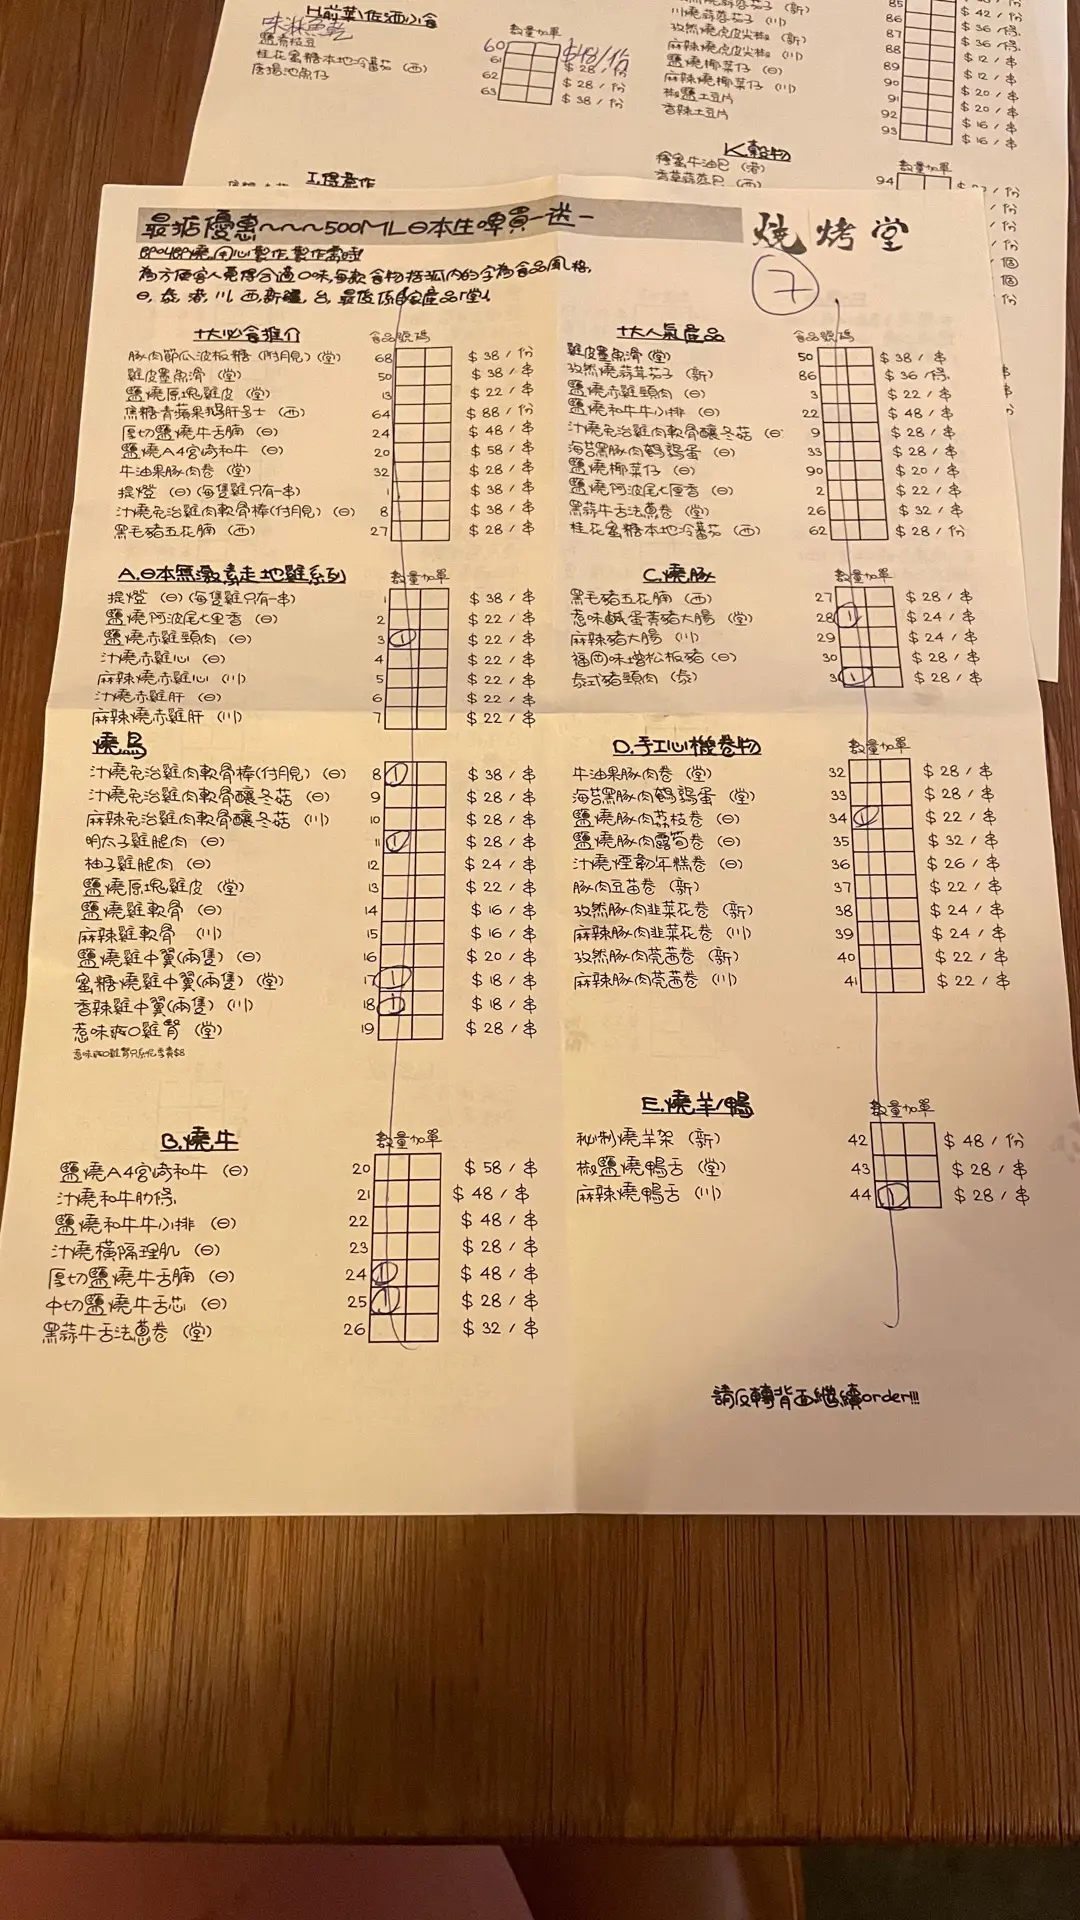 H.前菜\佐酒小食
味淋魚乾
數量加單
$48/份
鹽壽枝豆 61 $28/份
桂花蜜糖本地冷番茄 (西) 62 $28/份
唐揚池魚仔 63 $38/份
60
I.得意作
85
86 $42/串
87 $36/條
88 $36/條
89 $12/串
90 $12/串
91 $20/串
92 $20/串
93 $16/串
$16/串
川燒蒜蓉茄子 (川)
孜然燒虎皮尖椒 (新)
麻辣燒虎皮尖椒 (川)
鹽燒椰菜仔 (日)
麻辣燒椰菜仔 (川)
椒鹽土豆片
香辣土豆片
K.穀物
數量加單
94
最抵優惠~~~500ML日本生啤買一送一
燒烤堂
7
為方便客人覓得合適口味,每款食物括弧內的字為食品風格,
日,泰,港,川,西,新疆,台,最後係自家產品「堂」
十大必食推介 食品號碼
豚肉節瓜波板糖 (附月見) (堂) 68 $38/份
雞皮墨魚滑 (堂) 50 $38/串
鹽燒原塊雞皮 (堂) 13 $22/串
焦糖青蘋果鵝肝多士 (西) 64 $88/份
厚切鹽燒牛舌腩 (日) 24 $48/串
鹽燒A4宮崎和牛 (日) 20 $58/串
牛油果豚肉卷 (堂) 32 $28/串
提燈 (日) (每隻雞只有一串) 1 $38/串
汁燒免治雞肉軟骨棒(付月見) (日) 8 $38/串
黑毛豬五花腩 (西) 27 $28/串
十大人氣產品 食品號碼
雞皮墨魚滑 (堂) 50 $38/串
孜然燒蒜茸茄子 (新) 86 $36/條
鹽燒赤雞頸肉 (日) 3 $22/串
鹽燒和牛牛小排 (日) 22 $48/串
汁燒免治雞肉軟骨釀冬菇 (日 9 $28/串
海苔黑豚肉鵪鶉蛋 (日) 33 $28/串
鹽燒椰菜仔 (日) 90 $20/串
鹽燒阿波尾七里香 (日) 2 $22/串
黑蒜牛舌法蔥卷 (堂) 26 $32/串
桂花蜜糖本地冷番茄 (西) 62 $28/份
A.日本無激素走地雞系列 數量加單
提燈 (日) (每隻雞只有一串) 1 $38/串
鹽燒阿波尾七里香 (日) 2 $22/串
鹽燒赤雞頸肉 (日) 3 1 $22/串
汁燒赤雞心 (日) 4 $22/串
麻辣燒赤雞心 (川) 5 $22/串
汁燒赤雞肝 (日) 6 $22/串
麻辣燒赤雞肝 (川) 7 $22/串
燒鳥
汁燒免治雞肉軟骨棒(付月見) (日) 8 1 $38/串
汁燒免治雞肉軟骨釀冬菇 (日) 9 $28/串
麻辣免治雞肉軟骨釀冬菇 (川) 10 $28/串
明太子雞腿肉 (日) 11 1 $28/串
柚子雞腿肉 (日) 12 $24/串
鹽燒原塊雞皮 (堂) 13 $22/串
鹽燒雞軟骨 (日) 14 $16/串
麻辣雞軟骨 (川) 15 $16/串
鹽燒雞中翼(兩隻) (日) 16 $20/串
蜜糖燒雞中翼(兩隻) (堂) 17 1 $18/串
香辣雞中翼(兩隻) (川) 18 1 $18/串
惹味爽口雞腎 (堂) 19 $28/串
B.燒牛 數量加單
鹽燒A4宮崎和牛 (日) 20 $58/串
汁燒和牛肋條 21 $48/串
鹽燒和牛牛小排 (日) 22 $48/串
汁燒橫隔理肌 (日) 23 $28/串
厚切鹽燒牛舌腩 (日) 24 1 $48/串
中切鹽燒牛舌芯 (日) 25 1 $28/串
黑蒜牛舌法蔥卷 (堂) 26 $32/串
C.燒豚 數量加單
黑毛豬五花腩 (西) 27 $28/串
惹味鹹蛋黃豬大腸 (堂) 28 1 $24/串
麻辣豬大腸 (川) 29 $24/串
福岡味增松板豬 (日) 30 $28/串
泰式豬頸肉 (泰) 3 1 $28/串
D.手工心機卷物 數量加單
牛油果豚肉卷 (堂) 32 $28/串
海苔黑豚肉鵪鶉蛋 (堂) 33 $28/串
鹽燒豚肉荔枝卷 (日) 34 1 $22/串
鹽燒豚肉露筍卷 (日) 35 $32/串
汁燒煙韌年糕卷 (日) 36 $26/串
豚肉豆苗卷 (新) 37 $22/串
孜然豚肉韭菜花卷 (新) 38 $24/串
麻辣豚肉韭菜花卷 (川) 39 $24/串
孜然豚肉芫茜卷 (新) 40 $22/串
麻辣豚肉芫茜卷 (川) 41 $22/串
E.燒羊/鴨 數量加單
秘制燒羊架 (新) 42 $48/份
椒鹽燒鴨舌 (堂) 43 $28/串
麻辣燒鴨舌 (川) 44 1 $28/串
請反轉背面繼續order!!!